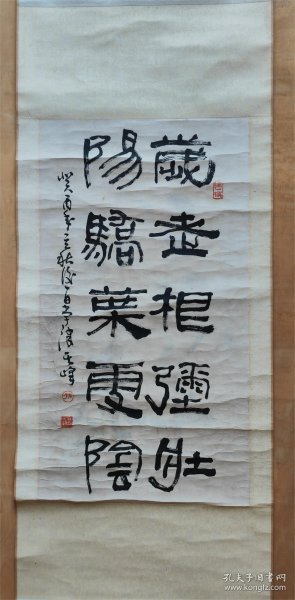 歲老根彌壯
陽驕葉更陰
癸酉年立秋後 其峰
孔夫子旧书网
kongfz.com